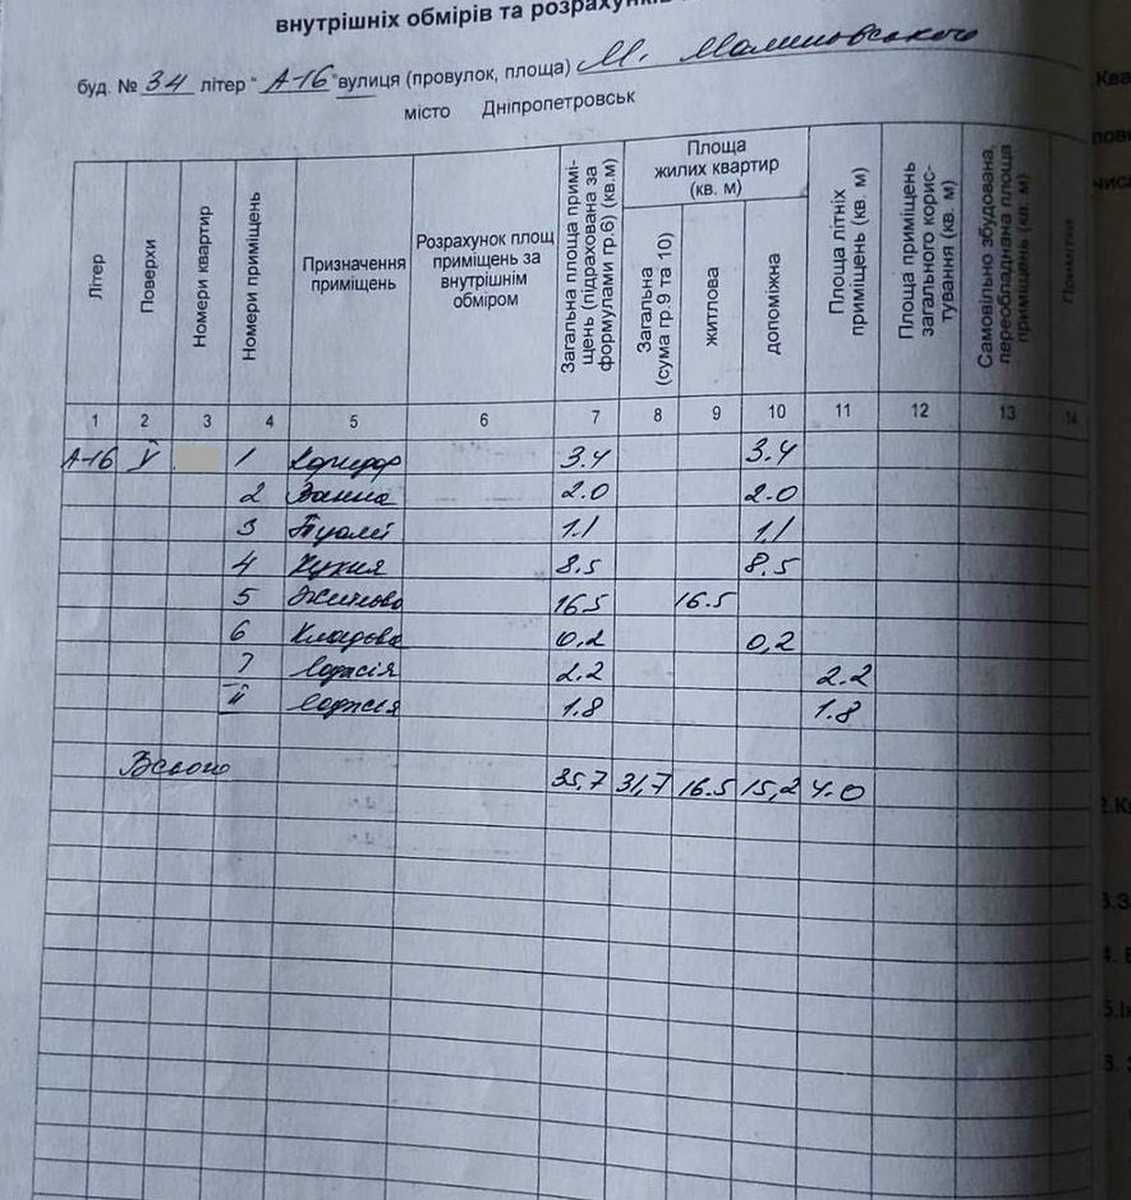 внутрішніх обмірів та розрахунків
буд. № 34 літер "А-16" вулиця (провулок, площа) М. Малиновського
місто Дніпропетровськ
Літер
Поверхи
Номери квартир
Номери приміщень
Призначення приміщень
Розрахунок площ приміщень за внутрішнім обміром
Загальна площа примі-щень (підрахована за формулами гр.6) (кв.м)
Площа жилих квартир (кв. м)
Загальна (сума гр.9 та 10)
житлова
допоміжна
Площа літніх приміщень (кв. м)
Площа приміщень загального корис-тування (кв. м)
Самовільно збудована, переобладнана площа приміщень (кв. м)
Примітки
1 2 3 4 5 6 7 8 9 10 11 12 13 14
А-16 V 1 Коридор 3.4 3.4
2 Ванна 2.0 2.0
3 Туалет 1.1 1.1
4 Кухня 8.5 8.5
5 Житлова 16.5 16.5
6 Кладова 0.2 0,2
7 Лоджія 2.2 2.2
II Лоджія 1.8 1.8
Всього 35,7 31,7 16.5 15,2 4.0
Ква
пові
числ
2.К
3.З
4. В
5.Ін
6. З